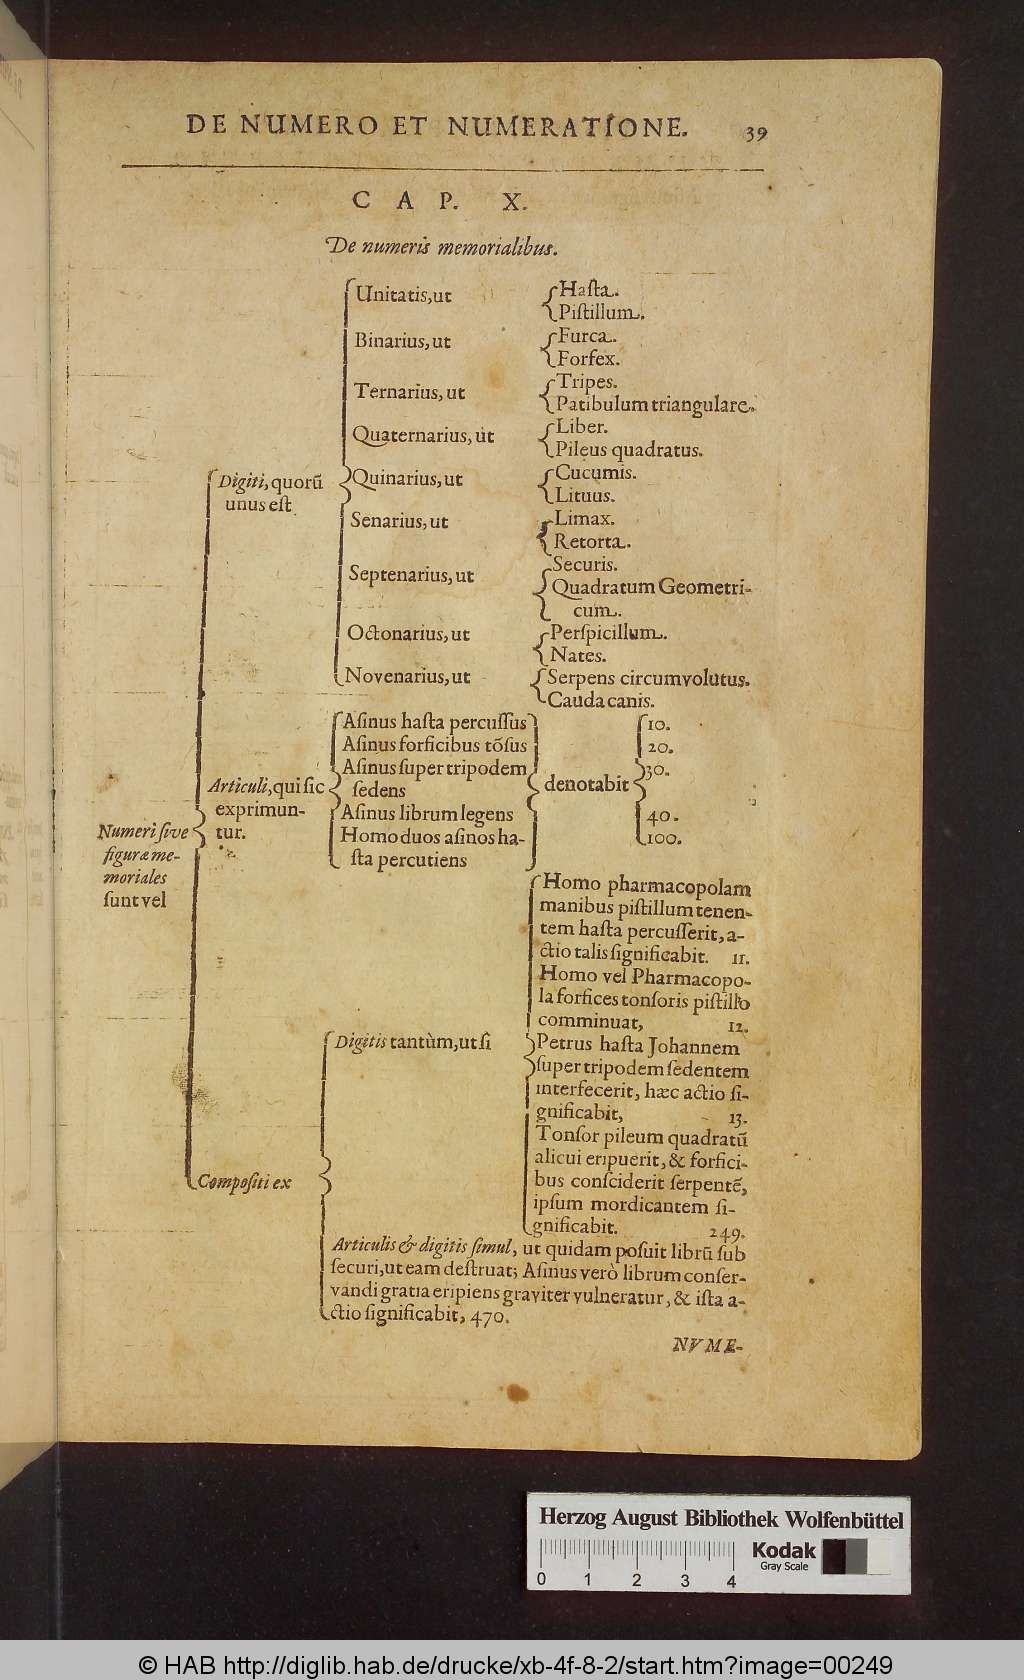 DE NUMERO ET NUMERATIONE. 39
CAP. X.
De numeris memorialibus.
Numeri ſive
figuræ me-
moriales
ſunt vel
Digiti, quorũ
unus eſt
Unitatis, ut
Haſta.
Piſtillum.
Binarius, ut
Furca.
Forfex.
Ternarius, ut
Tripes.
Patibulum triangulare.
Quaternarius, ut
Liber.
Pileus quadratus.
Quinarius, ut
Cucumis.
Lituus.
Senarius, ut
Limax.
Retorta.
Septenarius, ut
Securis.
Quadratum Geometri-
cum.
Octonarius, ut
Perſpicillum.
Nates.
Novenarius, ut
Serpens circumvolutus.
Cauda canis.
Articuli, qui ſic
exprimun-
tur.
Aſinus haſta percuſſus
Aſinus forficibus tõſus
Aſinus ſuper tripodem
ſedens
Aſinus librum legens
Homo duos aſinos ha-
ſta percutiens
denotabit
10.
20.
30.
40.
100.
Compoſiti ex
Digitis tantùm, ut ſi
Homo pharmacopolam
manibus piſtillum tenen-
tem haſta percuſſerit, a-
ctio talis ſignificabit. 11.
Homo vel Pharmacopo-
la forfices tonſoris piſtillo
comminuat, 12.
Petrus haſta Johannem
ſuper tripodem ſedentem
interfecerit, hæc actio ſi-
gnificabit, 13.
Tonſor pileum quadratũ
alicui eripuerit, & forfici-
bus conſciderit ſerpentẽ,
ipſum mordicantem ſi-
gnificabit. 249.
Articulis & digitis ſimul, ut quidam poſuit librũ ſub
ſecuri, ut eam deſtruat; Aſinus verò librum conſer-
vandi gratia eripiens graviter vulneratur, & iſta a-
ctio ſignificabit, 470.
NVME-
Herzog August Bibliothek Wolfenbüttel
Kodak
Gray Scale
0 1 2 3 4
© HAB http://diglib.hab.de/drucke/xb-4f-8-2/start.htm?image=00249